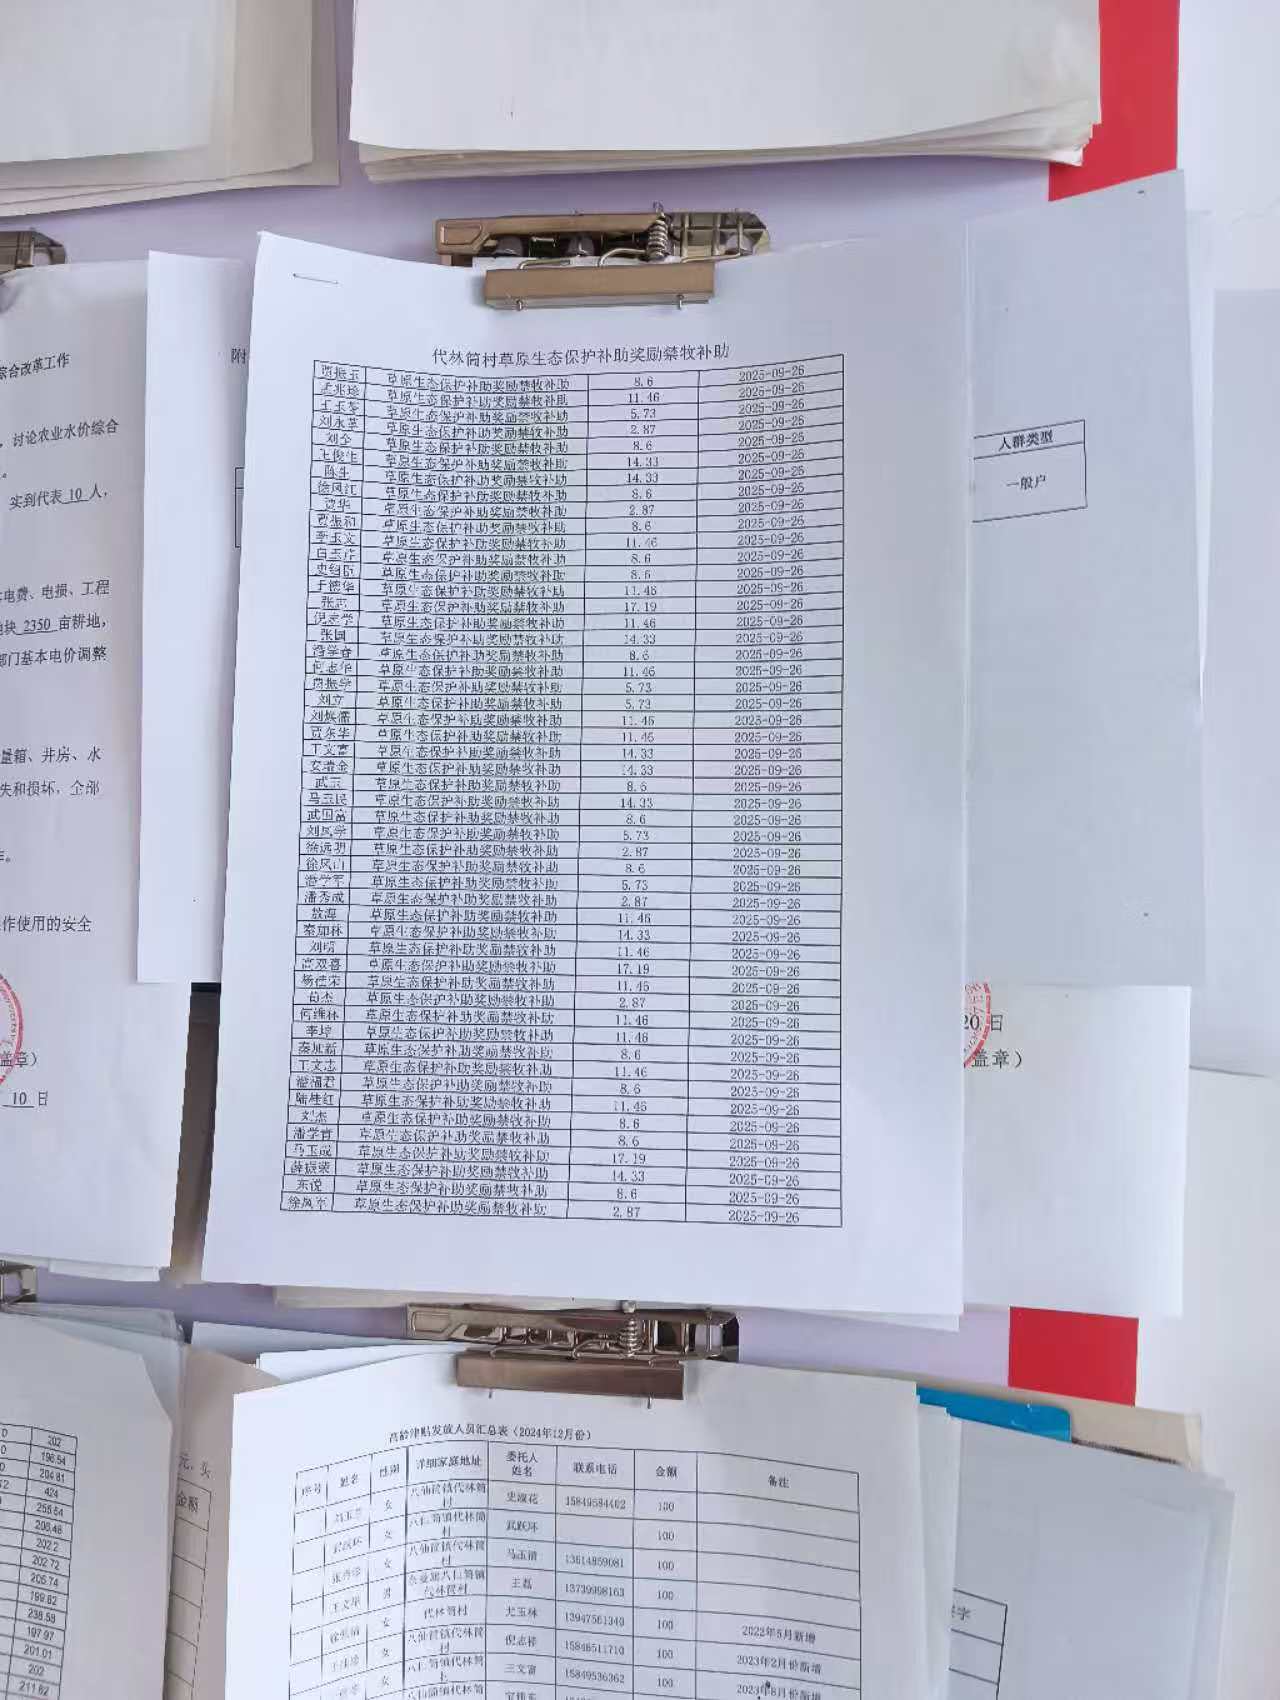 综合改革工作
，讨论农业水价综合
实到代表 10 人，
电费、电损、工程
块 2350 亩耕地，
部门基本电价调整
量箱、井房、水
失和损坏，全部
作使用的安全
盖章）
10 日
附
人群类型
一般户
20日
盖章）
代林筒村草原生态保护补助奖励禁牧补助
贾振玉 草原生态保护补助奖励禁牧补助 8.6 2025-09-26
孟兆珍 草原生态保护补助奖励禁牧补助 11.46 2025-09-26
草原生态保护补助奖励禁牧补助 5.73 2025-09-26
刘永革 草原生态保护补助奖励禁牧补助 2.87 2025-09-26
刘全 草原生态保护补助奖励禁牧补助 8.6 2025-09-26
草原生态保护补助奖励禁牧补助 14.33 2025-09-26
陈生 草原生态保护补助奖励禁牧补助 14.33 2025-09-26
徐凤江 草原生态保护补助奖励禁牧补助 8.6 2025-09-26
贾华 草原生态保护补助奖励禁牧补助 2.87 2025-09-26
贾振和 草原生态保护补助奖励禁牧补助 8.6 2025-09-26
李玉文 草原生态保护补助奖励禁牧补助 11.46 2025-09-26
草原生态保护补助奖励禁牧补助 8.6 2025-09-26
草原生态保护补助奖励禁牧补助 8.6 2025-09-26
于德华 草原生态保护补助奖励禁牧补助 11.46 2025-09-26
张志 草原生态保护补助奖励禁牧补助 17.19 2025-09-26
倪志学 草原生态保护补助奖励禁牧补助 11.46 2025-09-26
张国 草原生态保护补助奖励禁牧补助 14.33 2025-09-26
潘学春 草原生态保护补助奖励禁牧补助 8.6 2025-09-26
何志华 草原生态保护补助奖励禁牧补助 11.46 2025-09-26
贾振学 草原生态保护补助奖励禁牧补助 5.73 2025-09-26
刘立 草原生态保护补助奖励禁牧补助 5.73 2025-09-26
刘焕儒 草原生态保护补助奖励禁牧补助 11.46 2025-09-26
贾东华 草原生态保护补助奖励禁牧补助 11.46 2025-09-26
王文富 草原生态保护补助奖励禁牧补助 14.33 2025-09-26
安瑞金 草原生态保护补助奖励禁牧补助 14.33 2025-09-26
武玉 草原生态保护补助奖励禁牧补助 8.6 2025-09-26
马玉民 草原生态保护补助奖励禁牧补助 14.33 2025-09-26
武国富 草原生态保护补助奖励禁牧补助 8.6 2025-09-26
刘凤学 草原生态保护补助奖励禁牧补助 5.73 2025-09-26
徐远明 草原生态保护补助奖励禁牧补助 2.87 2025-09-26
徐凤山 草原生态保护补助奖励禁牧补助 8.6 2025-09-26
潘学军 草原生态保护补助奖励禁牧补助 5.73 2025-09-26
潘秀成 草原生态保护补助奖励禁牧补助 2.87 2025-09-26
敖海 草原生态保护补助奖励禁牧补助 11.46 2025-09-26
秦加林 草原生态保护补助奖励禁牧补助 14.33 2025-09-26
刘明 草原生态保护补助奖励禁牧补助 11.46 2025-09-26
高双喜 草原生态保护补助奖励禁牧补助 17.19 2025-09-26
杨佳荣 草原生态保护补助奖励禁牧补助 11.46 2025-09-26
苟杰 草原生态保护补助奖励禁牧补助 2.87 2025-09-26
何维林 草原生态保护补助奖励禁牧补助 11.46 2025-09-26
李坤 草原生态保护补助奖励禁牧补助 11.46 2025-09-26
秦加新 草原生态保护补助奖励禁牧补助 8.6 2025-09-26
王文志 草原生态保护补助奖励禁牧补助 11.46 2025-09-26
潘福君 草原生态保护补助奖励禁牧补助 8.6 2025-09-26
陆桂红 草原生态保护补助奖励禁牧补助 11.46 2025-09-26
刘杰 草原生态保护补助奖励禁牧补助 8.6 2025-09-26
潘学青 草原生态保护补助奖励禁牧补助 8.6 2025-09-26
马玉成 草原生态保护补助奖励禁牧补助 17.19 2025-09-26
薛振荣 草原生态保护补助奖励禁牧补助 14.33 2025-09-26
东悦 草原生态保护补助奖励禁牧补助 8.6 2025-09-26
徐凤军 草原生态保护补助奖励禁牧补助 2.87 2025-09-26
202
196.54
204.81
424
255.54
206.46
202.2
202.72
205.74
199.62
238.58
197.97
201.01
202
211.62
元、头
金额
高龄津贴发放人员汇总表（2024年12月份）
序号 姓名 性别 详细家庭地址 委托人姓名 联系电话 金额 备注
女 八仙筒镇代林筒村 史淑花 15849584402 100
武跃环 女 八仙筒镇代林筒村 武跃环 100
女 八仙筒镇代林筒村 马玉清 13614859081 100
王文华 男 奈曼旗八仙筒镇代林筒村 王磊 13739998163 100
女 代林筒村 尤玉林 13947561340 100 2022年5月新增
女 八仙筒镇代林筒村 倪志彬 15848511710 100 2023年2月份新增
女 八仙筒镇代林筒村 王文富 15849536362 100 2023年8月份新增
八仙筒镇代林筒
签字